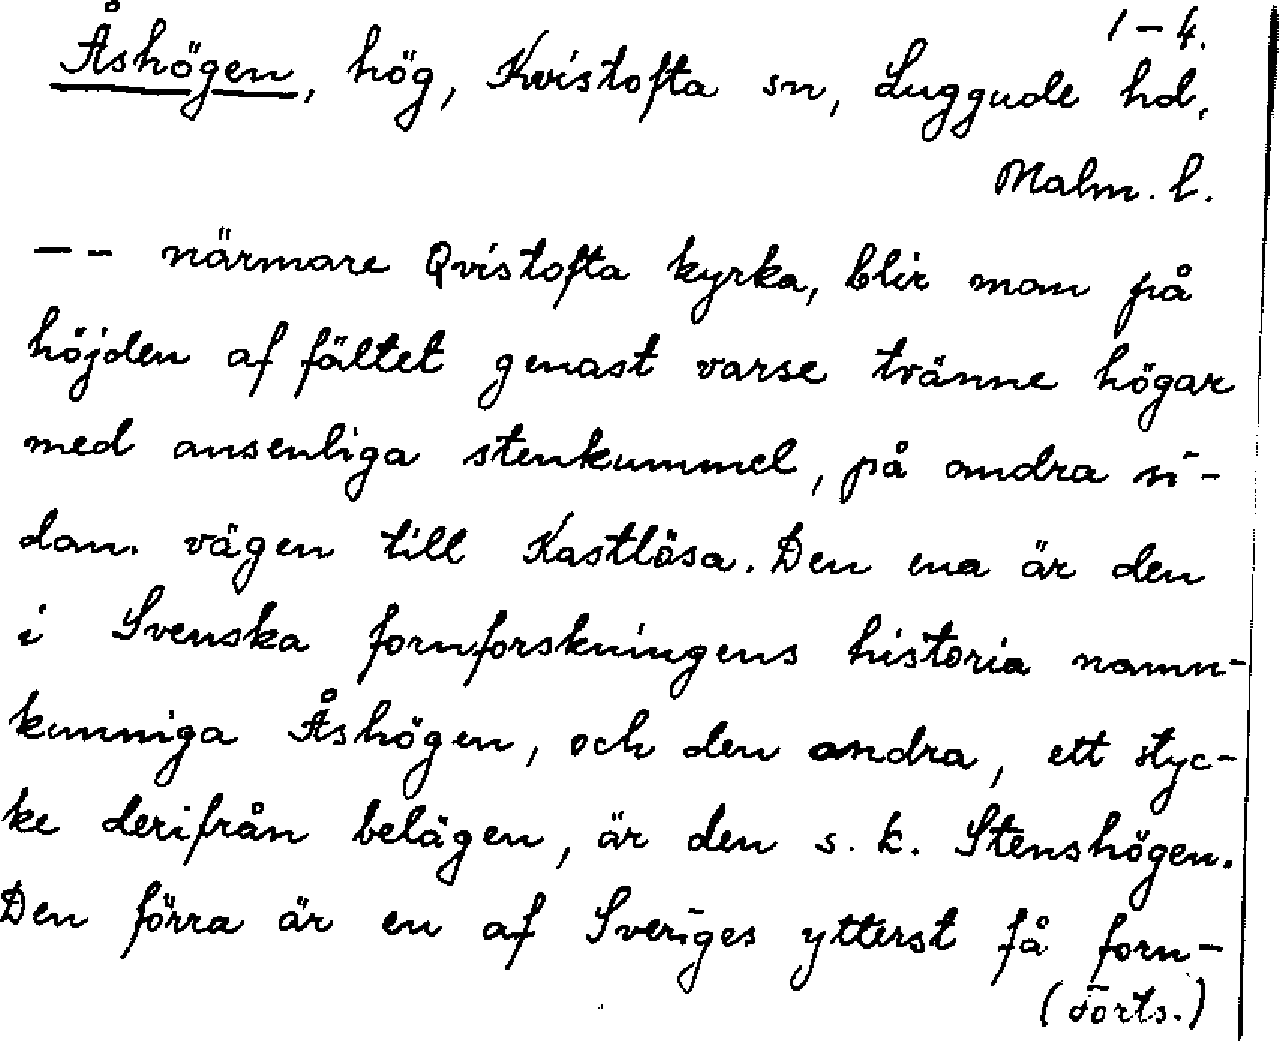 1-4.
Åshögen, hög, Kvistofta sn, Luggude hd,
Malm. l.
-- närmare Qvistofta kyrka, blir man på
höjden af fältet genast varse tränne högar
med ansenliga stenkummel, på andra si-
dan. vägen till Kastlösa. Den ena är den
i Svenska fornforskningens historia namn-
kunniga Åshögen, och den andra, ett styc-
ke derifrån belägen, är den s. k. Stenshögen.
Den förra är en af Sveriges ytterst få forn-
(Forts.)